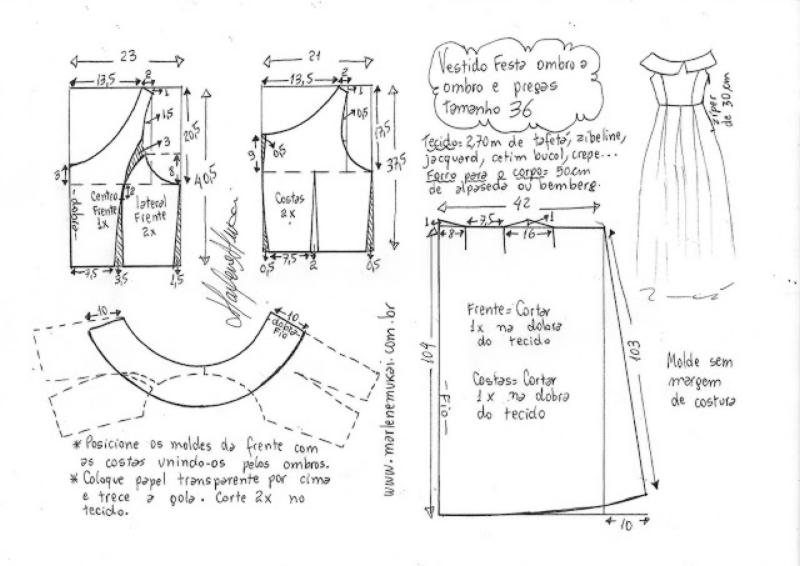 23
13,5
2
1
1,5
3
20,5
3
8
40,5
2
-dobra-
Centro
Frente
1x
lateral
Frente
2x
7,5
3,5
1,5
21
13,5
2
1
0,5
17,5
9
0,5
37,5
Costas
2x
0,5
7,5
2
0,5
Vestido Festa ombro a
ombro e pregas
Tamanho 36
Tecido= 2,70m de tafetá, zibeline,
jacquard, cetim bucol, crepe...
Forro para o corpo= 50cm
de alpaseda ou bemberg.
zíper
de 30cm
42
1
7,5
1
8
16
109
103
Frente= Cortar
1x na dobra
do tecido
Costas= Cortar
1x na dobra
do tecido
-Fio-
10
Molde sem
margem
de costura
10
10
dobra-
Fio
www.marlenemukai.com.br
* Posicione os moldes da frente com
as costas unindo-os pelos ombros.
* Coloque papel transparente por cima
e trece a gola. Corte 2x no
tecido.